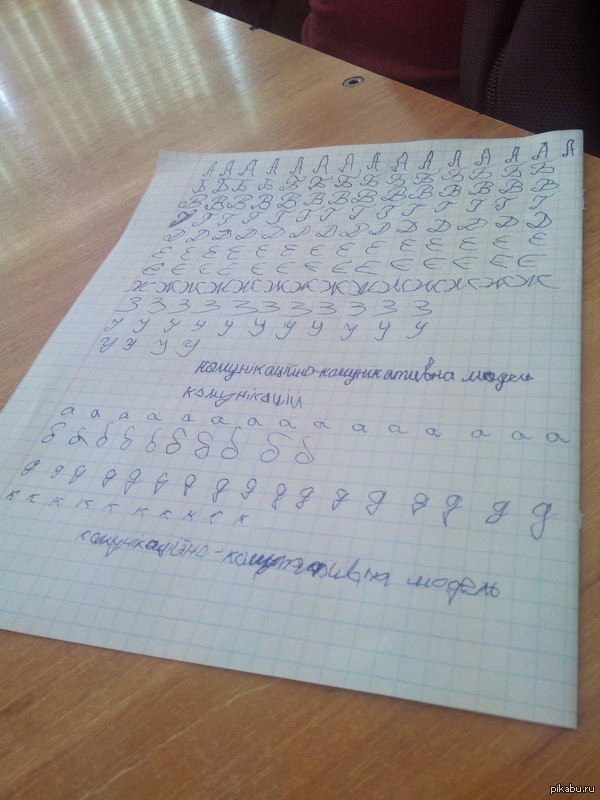 А А А А А А А А А А А А А А А
Б Б Б Б Б Б Б Б Б Б Б Б Б Б
В В В В В В В В В В В В В В
Г Г Г Г Г Г Г Г Г Г Г Г Г Г
Д Д Д Д Д Д Д Д Д Д Д Д Д
Е Е Е Е Е Е Е Е Е Е Е Е Е
Є Є Є Є Є Є Є Є Є Є Є Є Є Є
Ж Ж Ж Ж Ж Ж Ж Ж Ж Ж Ж Ж Ж Ж
З З З З З З З З З З З
У У У У У У У У У У У
У У У У
комунікаційно-комунікативна модель
комунікації
а а а а а а а а а а а а а а а а
б б б б б б б б б б
д д д д д д д д д д д д д д д д д
к к к к к к к к к к
комунікаційно-комунікативна модель
pikabu.ru